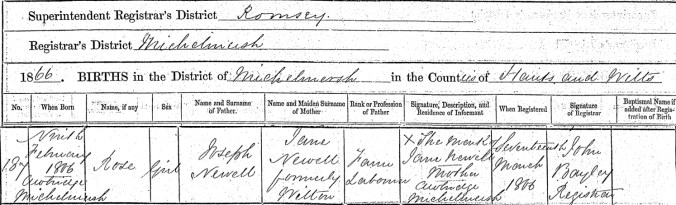 Superintendent Registrar's District Romsey.
Registrar's District Michelmersh
1866. BIRTHS in the District of Michelmersh in the Counties of Hants and Wilts
No. When Born Name, if any Sex Name and Surname of Father. Name and Maiden Surname of Mother Rank or Profession of Father Signature, Description, and Residence of Informant When Registered Signature of Registrar Baptismal Name if added after Registration of Birth
Ninth February 1866 Awbridge Michelmersh
Rose
Girl
Joseph Newell
Jane Newell formerly Wilton
Farm Labourer
X The Mark of Jane Newell Mother Awbridge Michelmersh
Seventeenth March 1866
John Bayley Registrar